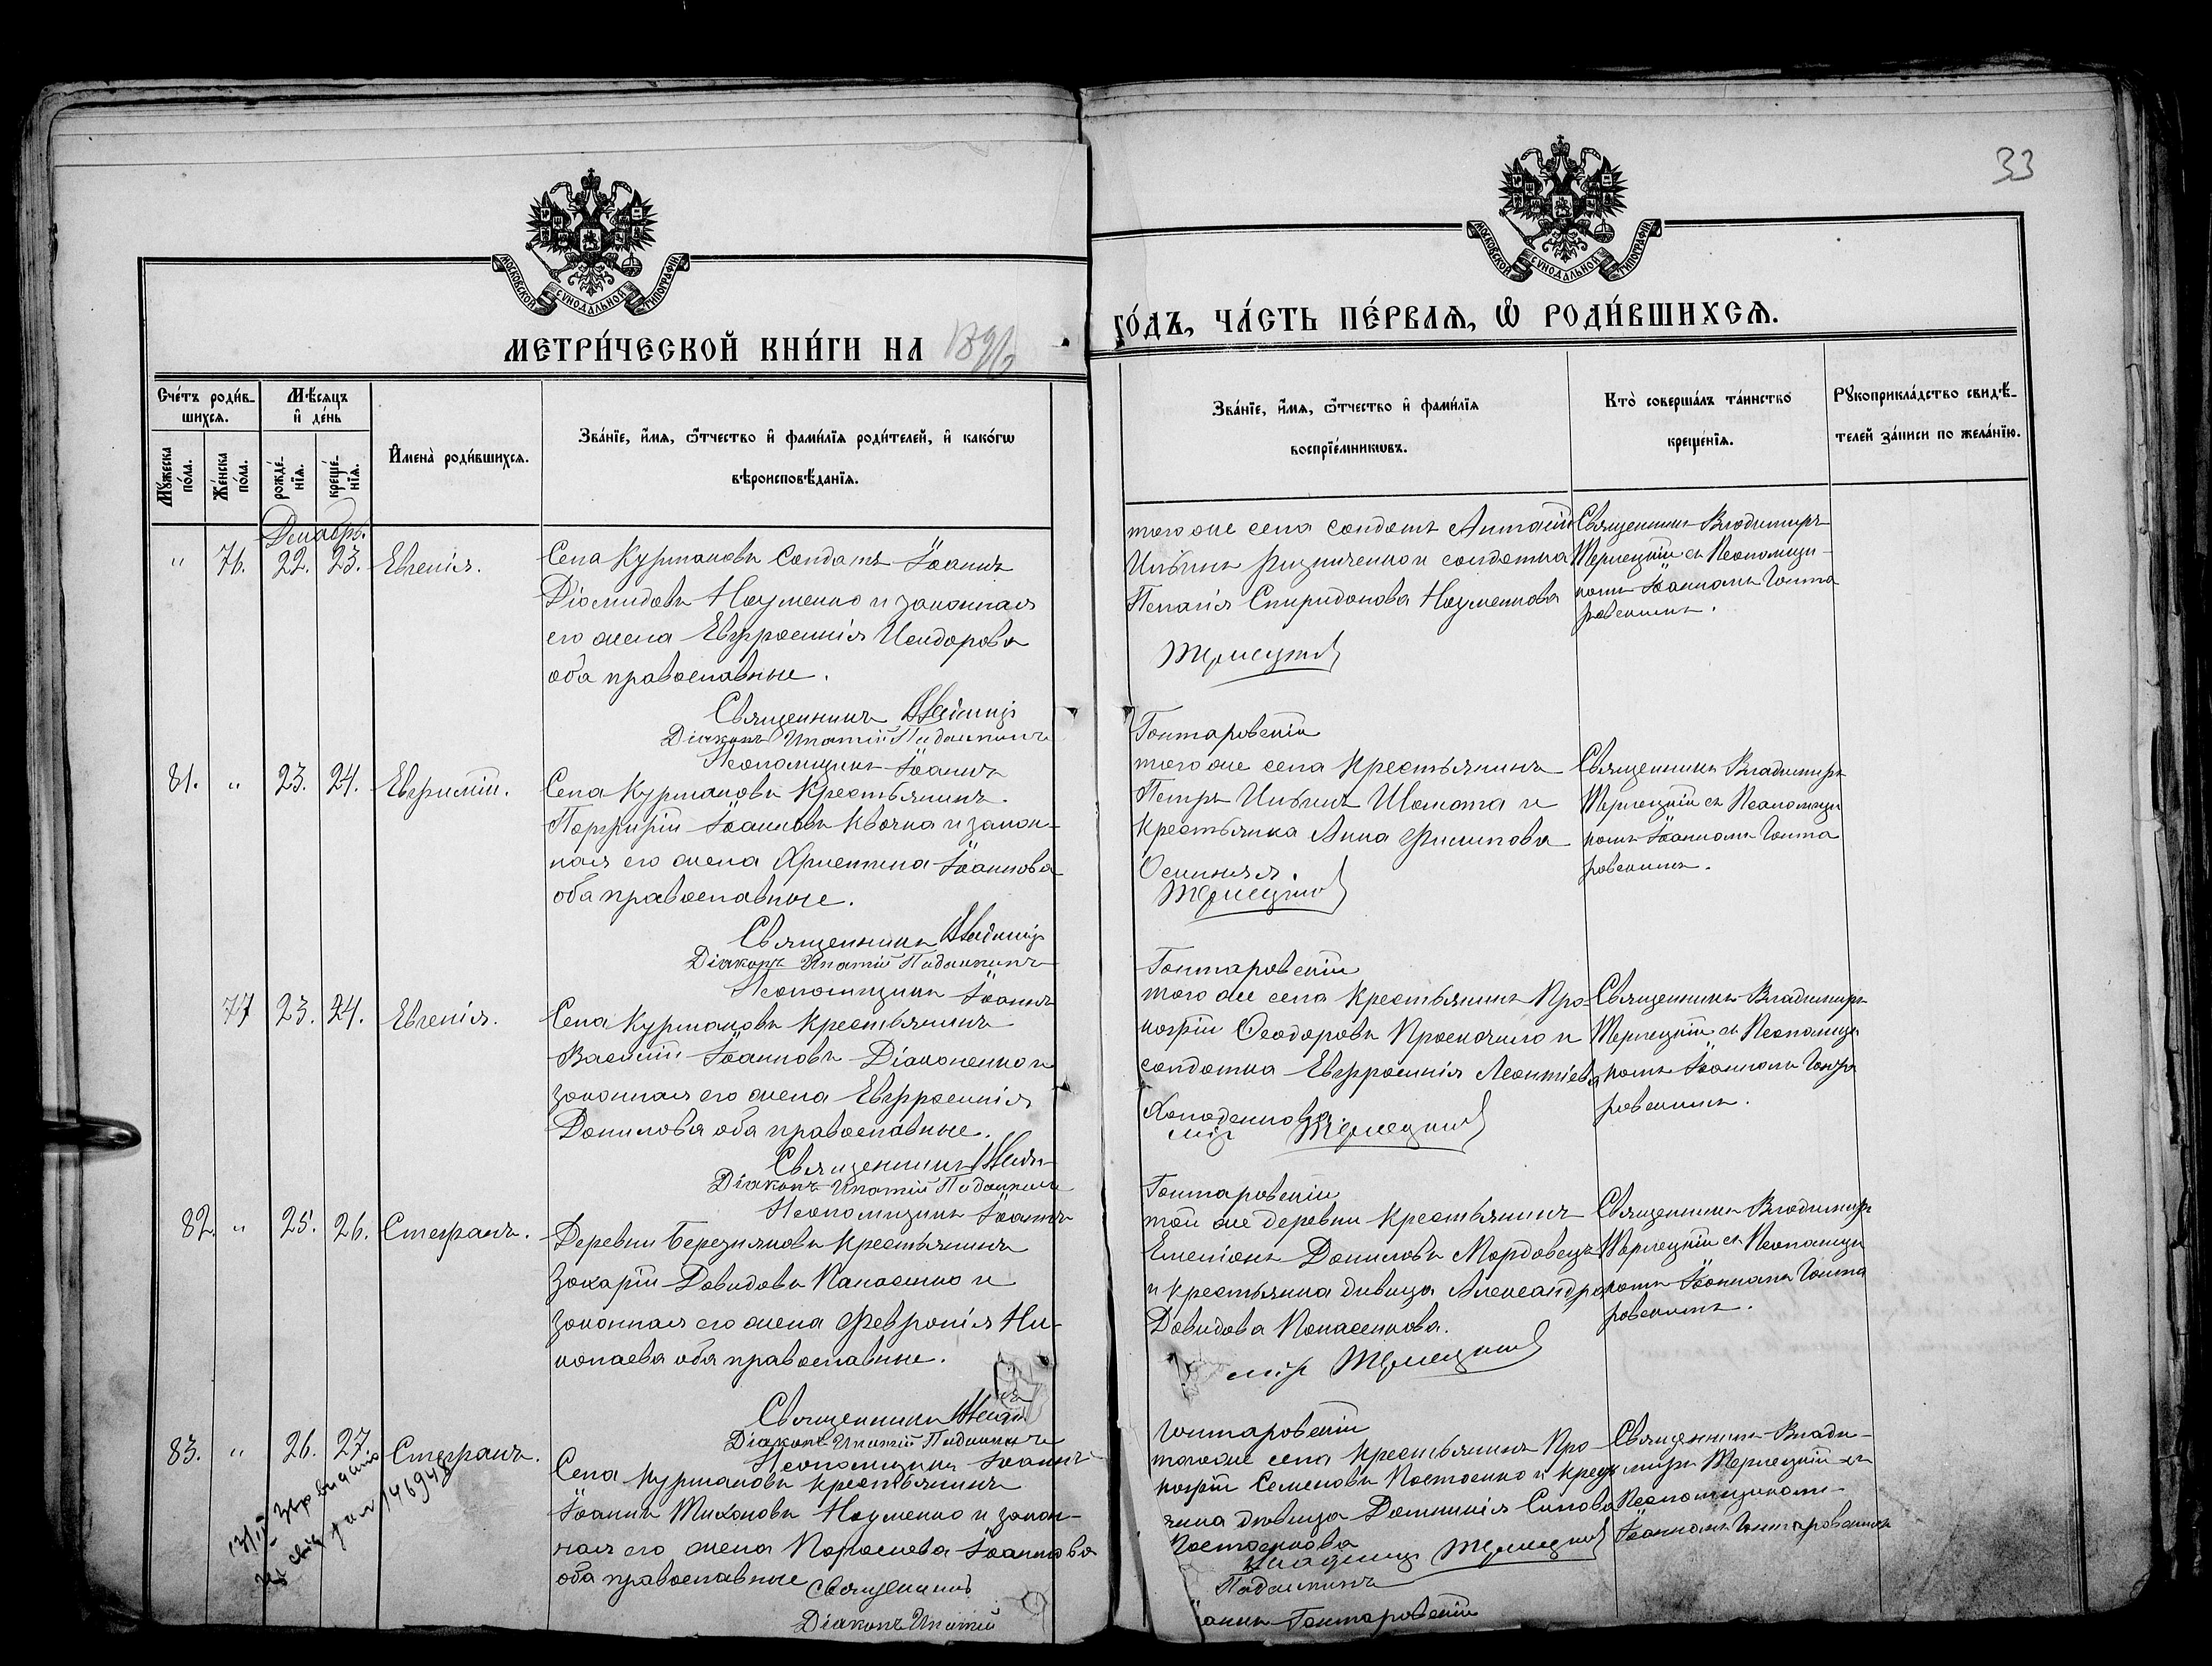 33
МОСКОВСКОЙ СѴНОДАЛЬНОЙ ТИПОГРАФІИ
МОСКОВСКОЙ СѴНОДАЛЬНОЙ ТИПОГРАФІИ
МЕТРИ́ЧЕСКОЙ КНИ́ГИ НА
ГО́ДЪ, ЧА́СТЬ ПЕ́РВАЯ, Ѡ РОДИ́ВШИХСЯ.
Сче́тъ роди́в-
шихся.
Мꙋ́жеска по́ла.
Же́нска по́ла.
Мѣ́сяцъ
и҆ де́нь
рожде́-
нїя.
креще́-
нїя.
И҆мена̀ роди́вшихся.
Зва́нїе, и҆́мя, ѻ҆́тчество и҆ фами́лїя роди́телей, и҆ како́гѡ
вѣроисповѣ́данїя.
Зва́нїе, и҆́мя, ѻ҆́тчество и҆ фами́лїя
воспрїе́мникѡвъ.
Кто̀ соверша́лъ та́инство
креще́нїя.
Рꙋкоприкла́дство свидѣ́-
телей за́писи по жела́нїю.
Декабрь.
" 76. 22. 23. Евгенія.
Села Курманова Солдатъ Іоаннъ
Діомидовъ Науменко и законная
его жена Евфросинія Исидорова
оба православные.
Священникъ Владимір
Діаконъ Ипатій Подашкинъ
Псаломщикъ Іоаннъ
того же села солдатъ
Пелагія Спиридонова Науменкова
Терлецкій
Гонтаровскій
Священникъ Владиміръ
Терлецкій съ Псаломщи-
комъ Іоанномъ Гонта
ровскимъ.
81. " 23. 24. Евфимій.
Села Курманова Крестьянинъ
Порфирій Іоанновъ Квочка и закон-
ная его жена Христина Іоаннова
оба православные.
Священникъ Владимір
Діаконъ Ипатій Подашкинъ
Псаломщикъ Іоаннъ
того же села Крестьянинъ
Петръ Ильинъ Шамота и
крестьянка Анна Филипова
Терлецкій
Гонтаровскій
Священникъ Владиміръ
Терлецкій съ Псаломщи
комъ Іоанномъ Гонта
ровскимъ.
77 23. 24. Евгенія.
Села Курманова крестьянинъ
Василій Іоанновъ Діаконенко и
законная его жена Евфросинія
Данилова оба православные.
Священникъ Влади-
Діаконъ Ипатій Подашкинъ
Псаломщикъ Іоаннъ
того же села Крестьянинъ Про-
кофій Ѳеодоровъ и
солдатка Евфросинія Леонтіева
Холоденкова
мір Терлецкій
Гонтаровскій
Священникъ Владиміръ
Терлецкій съ Псаломщи
комъ Іоанномъ Гонта
ровскимъ.
82. " 25. 26. Стефанъ.
Деревни Березнякова Крестьянинъ
Захарій Давидовъ Панасенко и
законная его жена Февронія Ни-
колаева оба православные.
Священникъ Влади
Діаконъ Ипатій Подашкинъ
Псаломщикъ Іоаннъ
той же деревни Крестьянинъ
Емеліанъ Даниловъ Мордовецъ
и крестьянка дѣвица Александра
Давидова Панасенкова.
мір Терлецкій
Гонтаровскій
Священникъ Владиміръ
Терлецкій съ Псаломщи
комъ Іоанномъ Гонта
ровскимъ.
83. " 26. 27. Стефанъ.
Села Курманова крестьянинъ
Іоаннъ Тихоновъ Науменко и закон-
ная его жена Параскева Іоаннова
оба православные
Священникъ
Діаконъ Ипатій
того же села Крестьянинъ Про-
кофій Семеновъ Костенко и крест
дѣвица Домникія
Костенкова
Владимір Терлецкій
Подашкинъ
оаннъ Гонтаровскій
Священникъ Влади-
миръ Терлецкій съ
Псаломщикомъ
Іоанномъ Гонтаровскимъ